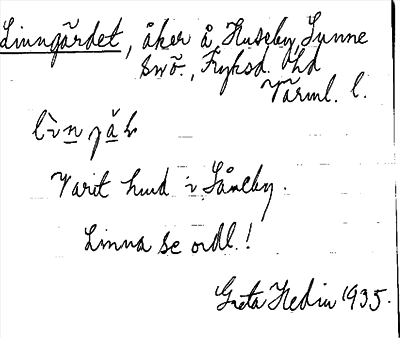 Linngärdet, åker å Huseby, Sunne
sn ö., Fryksd. hd
Värml. l.
Varit hind i Såneby.
Linna se ordl.!
Greta Hedin 1935.